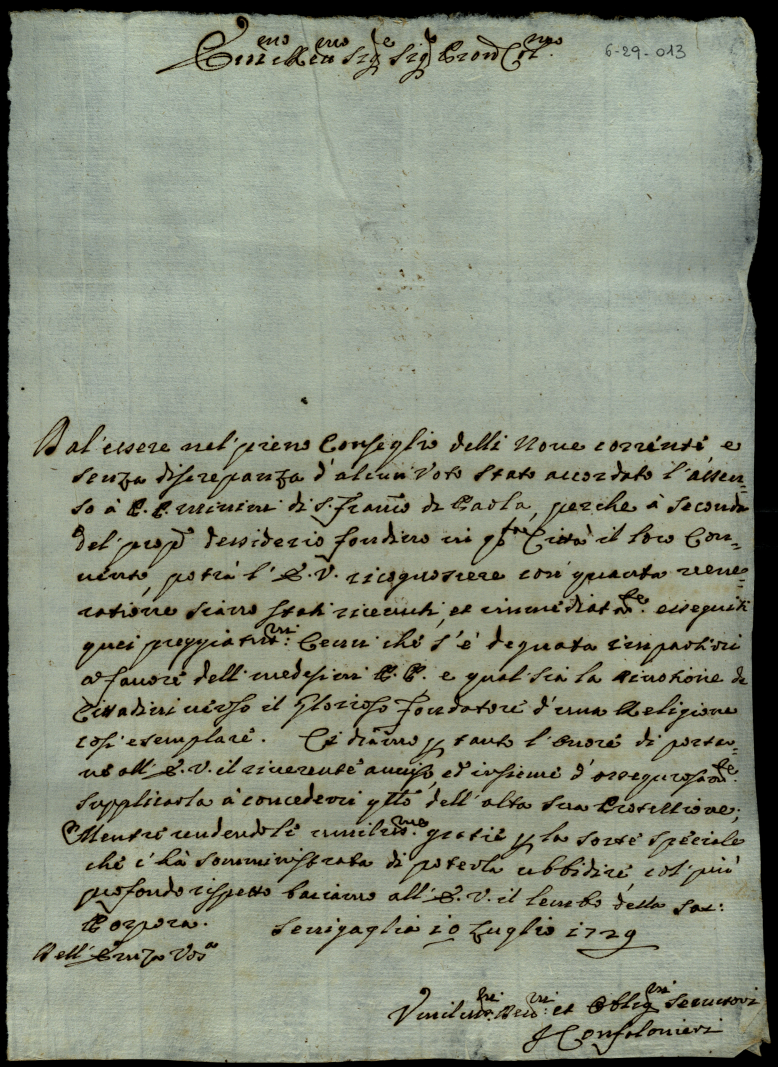 Em.mo e Rev.mo Sig.re Sig.re Pron Col.mo 6-29-013
Dal'essere nel pieno Conseglio delli Nove corrente, e
senza discrepanza d'alcun voto stato accordato l'assen=
so à P.P. minimi di S. Franco di Paola, perche à seconda
del prop.o dessiderio fondino in q.sta Città il loro Con=
uento, potrà l'E.V. ricognoscere con quanta uene=
ratione siano stati riceuuti, et immediatam.te esseguiti
quei preggiatiss.mi Cenni che s'è degnata impartirci
a fauore delli medesimi P.P. e qual sia la diuotione de
Cittadini uerso il Glorioso fondatore d'una Religione
così esemplare. Ci diamo p tanto l'onore di portar=
ne all'E.V. il riuerente auuiso, ed insieme d'ossequiosam.te
supplicarla à concederci q.llo dell'alta sua Protettione;
Mentre rendendole umiliss.me gratie p la sorte speciale
che ci hà somministrata di poterla ubbidire, col più
profondo rispetto baciamo all'E.V. il lembo della Sac:
Porpora. Senigaglia 10 Luglio 1729
Dell'Emza Vos.a
Umilis.mi Deu.mi et Oblig.mi Seruitori
Il Confaloniere